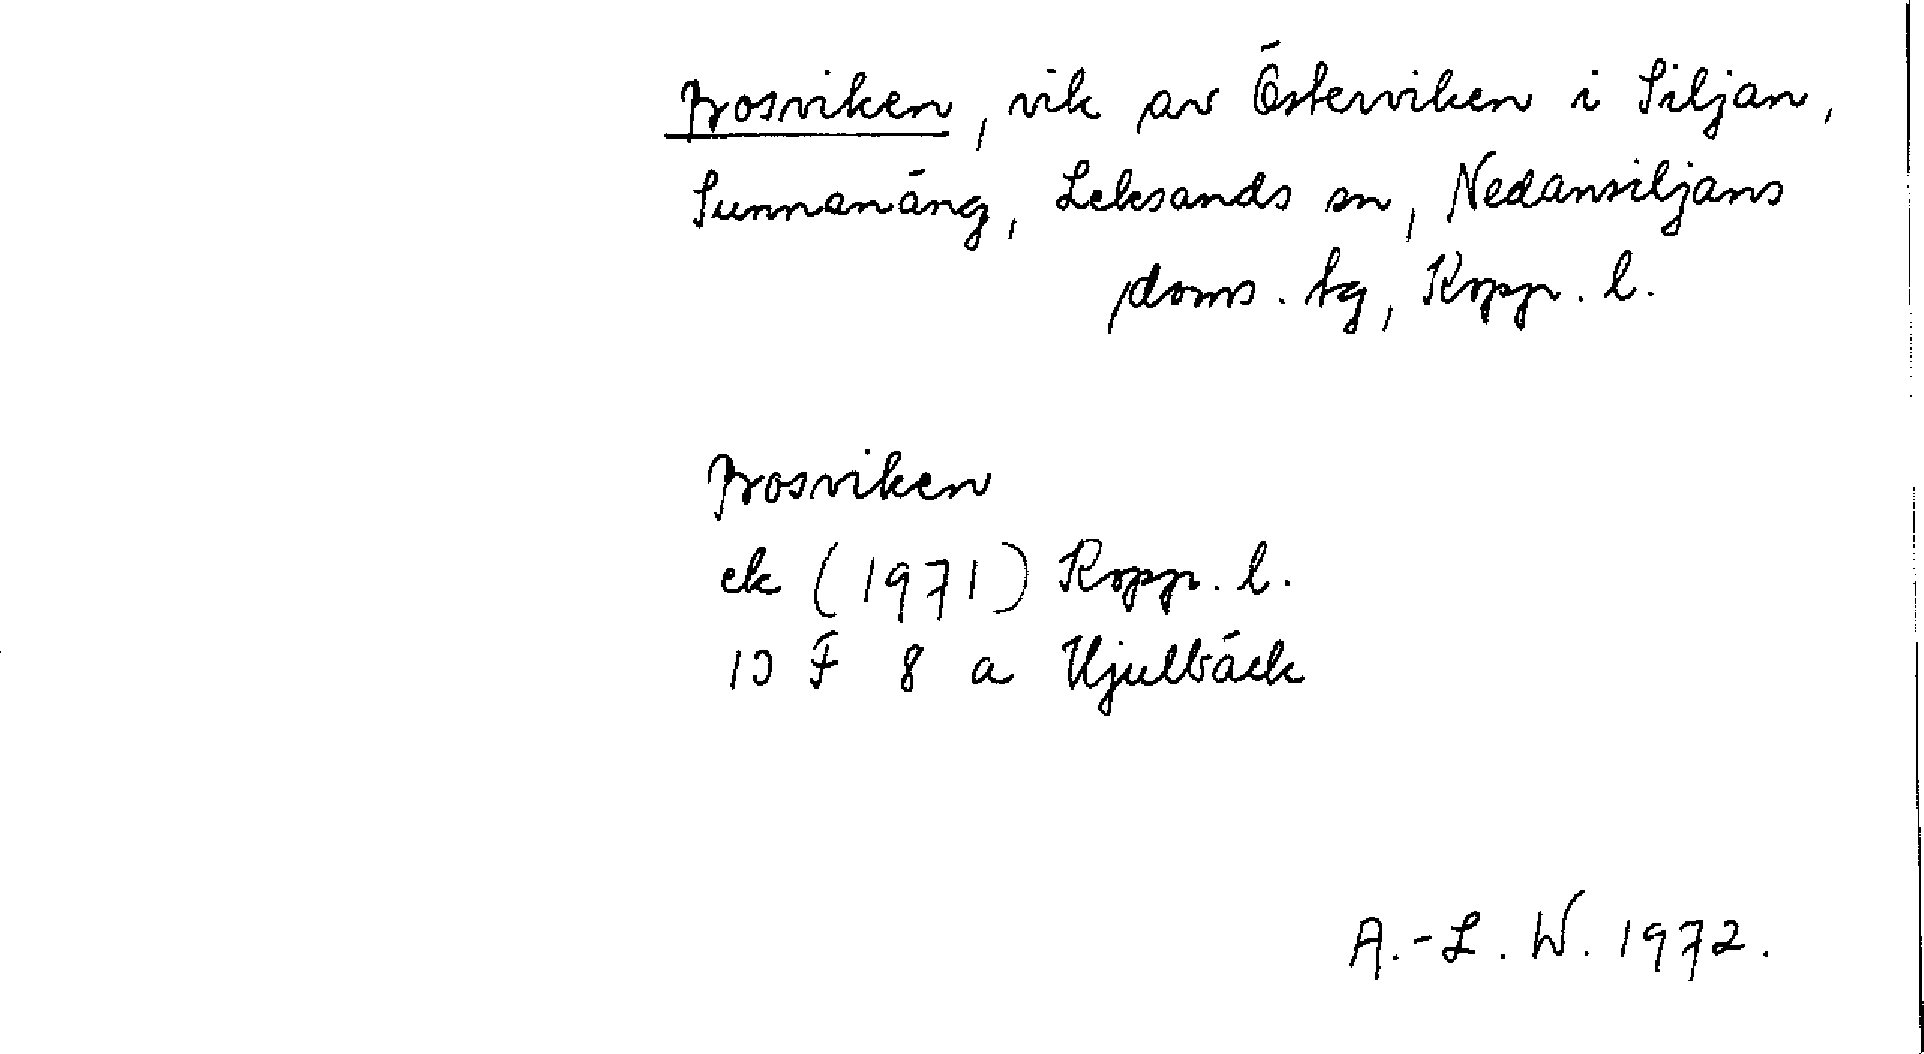 Prosviken, vik av Österviken i Siljan,
Sunnanäng, Leksands sn, Nedansiljans
doms. tg, Kopp. l.
Prosviken
ek (1971) Kopp. l.
13 F 8 a Hjulbäck
A.-L. W. 1972.